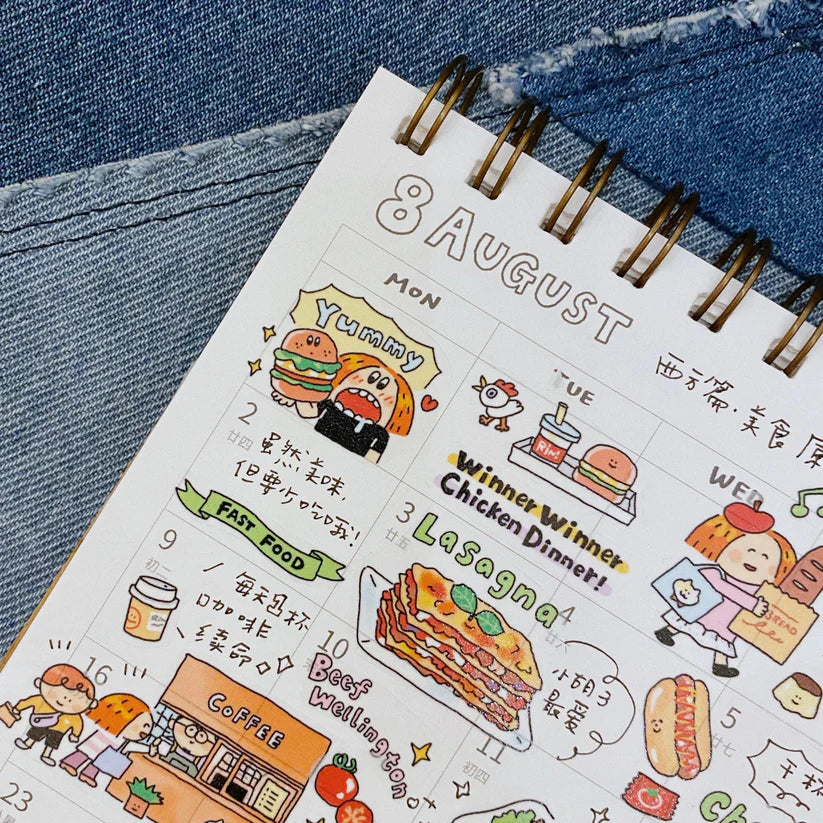 8 AUGUST
西方篇·美食
MON
TUE
WED
Yummy
RiM
Winner Winner
Chicken Dinner!
2
廿四
虽然美味,
但要少吃哦!
FAST FOOD
3
廿五
Lasagna
4
廿六
BREAD
9
初一
每天1杯
咖啡
续命
10
Beef
Wellington
小胡子
最爱
5
廿七
16
COFFEE
11
初四
Ch
23